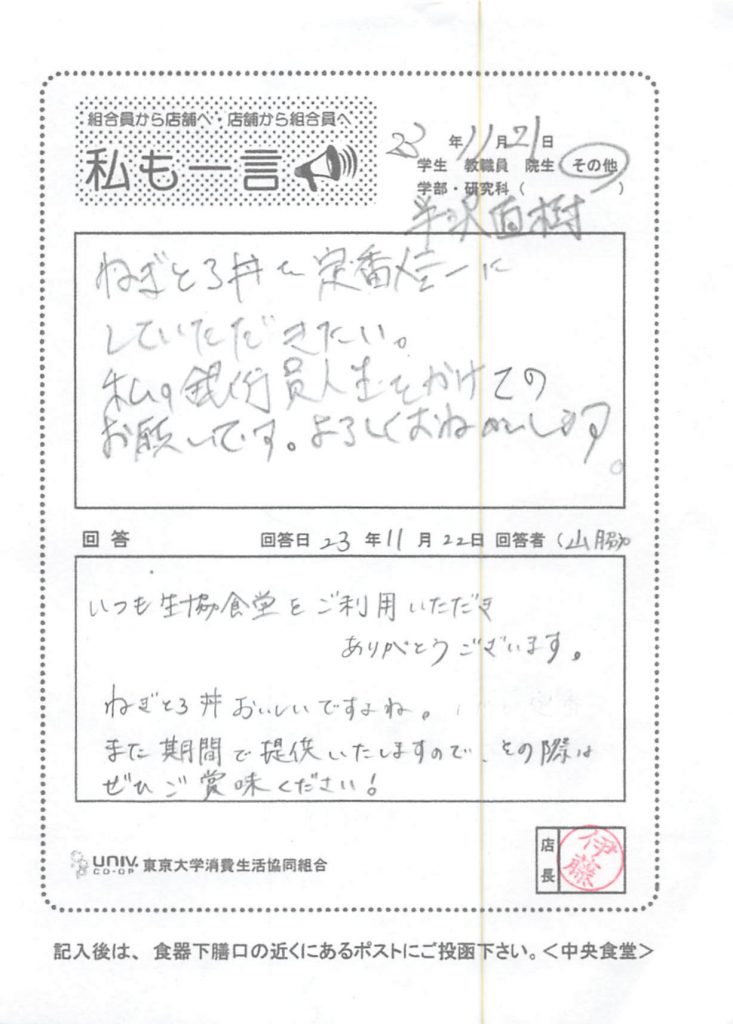 組合員から店舗へ・店舗から組合員へ
私も一言
23年11月21日
学生 教職員 院生 その他
学部・研究科（ ）
半沢直樹
ねぎとろ丼を定番メニューに
していただきたい。
私の銀行員人生をかけての
お願いです。よろしくおねがいします。
回答 回答日 23年11月22日 回答者（山脇）
いつも生協食堂をご利用いただき
ありがとうございます。
ねぎとろ丼おいしいですよね。
また期間で提供いたしますので、その際は
ぜひご賞味ください！
UNIV.
CO-OP
東京大学消費生活協同組合
店長
伊藤
記入後は、食器下膳口の近くにあるポストにご投函下さい。＜中央食堂＞